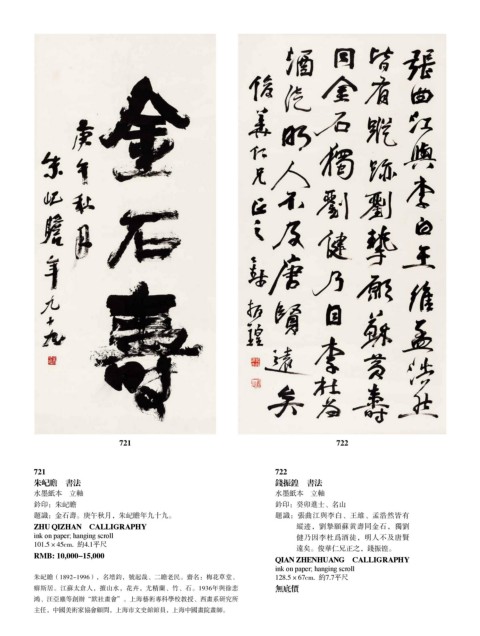 金石壽
庚午秋月
朱屺瞻年九十九
張曲江與李白王維孟浩然
皆有蹤跡劉摯願蘇黃壽
同金石獨劉健乃目李杜為
酒徒明人不及唐賢遠矣
俊華仁兄正之 錢振鍠
721
722
721
朱屺瞻 書法
水墨紙本 立軸
鈐印：朱屺瞻
題識：金石壽。庚午秋月，朱屺瞻年九十九。
ZHU QIZHAN CALLIGRAPHY
ink on paper; hanging scroll
101.5 x 45cm. 約4.1平尺
RMB: 10,000-15,000
朱屺瞻（1892-1996），名增鈞，號起哉、二瞻老民。齋名：梅花草堂、
癖斯居。江蘇太倉人，擅山水、花卉，尤精蘭、竹、石。1936年與徐悲
鴻、汪亞塵等創辦“默社畫會”。上海藝術專科學校教授、西畫系研究所
主任，中國美術家協會顧問，上海市文史館館員，上海中國畫院畫師。
722
錢振鍠 書法
水墨紙本 立軸
鈐印：癸卯進士、名山
題識：張曲江與李白、王維、孟浩然皆有
蹤迹，劉摯願蘇黃壽同金石，獨劉
健乃因李杜爲酒徒，明人不及唐賢
遠矣。俊華仁兄正之，錢振鍠。
QIAN ZHENHUANG CALLIGRAPHY
ink on paper; hanging scroll
128.5 x 67cm. 約7.7平尺
無底價